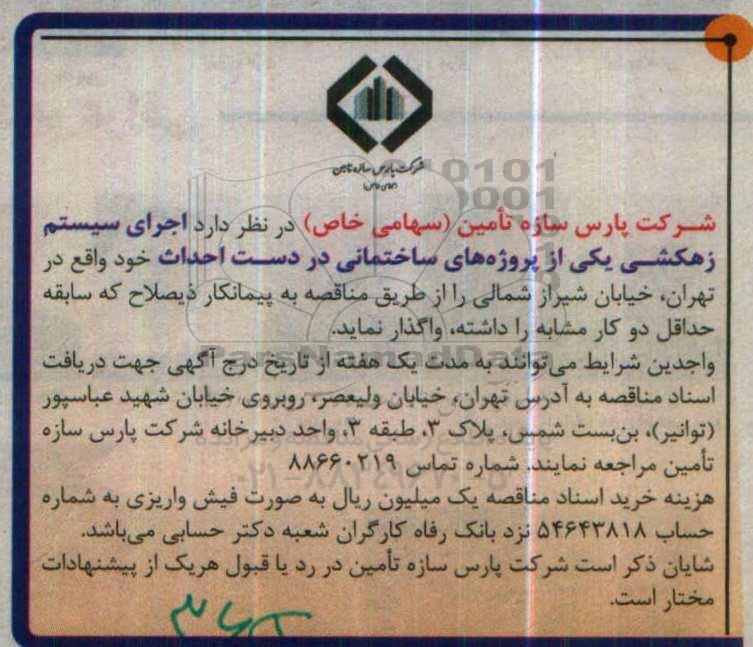 شرکت پارس سازه تامین
(سهامی خاص)
شرکت پارس سازه تأمین (سهامی خاص) در نظر دارد اجرای سیستم
زهکشی یکی از پروژه‌های ساختمانی در دست احداث خود واقع در
تهران، خیابان شیراز شمالی را از طریق مناقصه به پیمانکار ذیصلاح که سابقه
حداقل دو کار مشابه را داشته، واگذار نماید.
واجدین شرایط می‌توانند به مدت یک هفته از تاریخ درج آگهی جهت دریافت
اسناد مناقصه به آدرس تهران، خیابان ولیعصر، روبروی خیابان شهید عباسپور
(توانیر)، بن‌بست شمس، پلاک ۳، طبقه ۳، واحد دبیرخانه شرکت پارس سازه
تأمین مراجعه نمایند. شماره تماس ۸۸۶۶۰۲۱۹
هزینه خرید اسناد مناقصه یک میلیون ریال به صورت فیش واریزی به شماره
حساب ۵۴۶۴۳۸۱۸ نزد بانک رفاه کارگران شعبه دکتر حسابی می‌باشد.
شایان ذکر است شرکت پارس سازه تأمین در رد یا قبول هریک از پیشنهادات
مختار است.
ParsNamadData